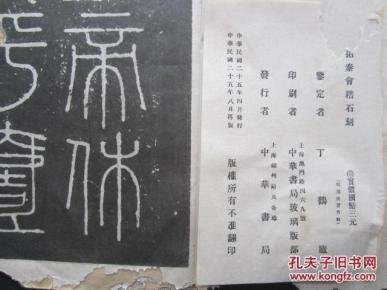 帝休
拓秦會稽石刻
實價國幣三元
鑒定者 丁鶴廬
上海澳門路四六九號
印刷者 中華書局玻璃版部
上海福州路及各埠
發行者 中華書局
中華民國二十五年四月發行
中華民國二十五年八月再版
版權所有不准翻印
孔夫子旧书网